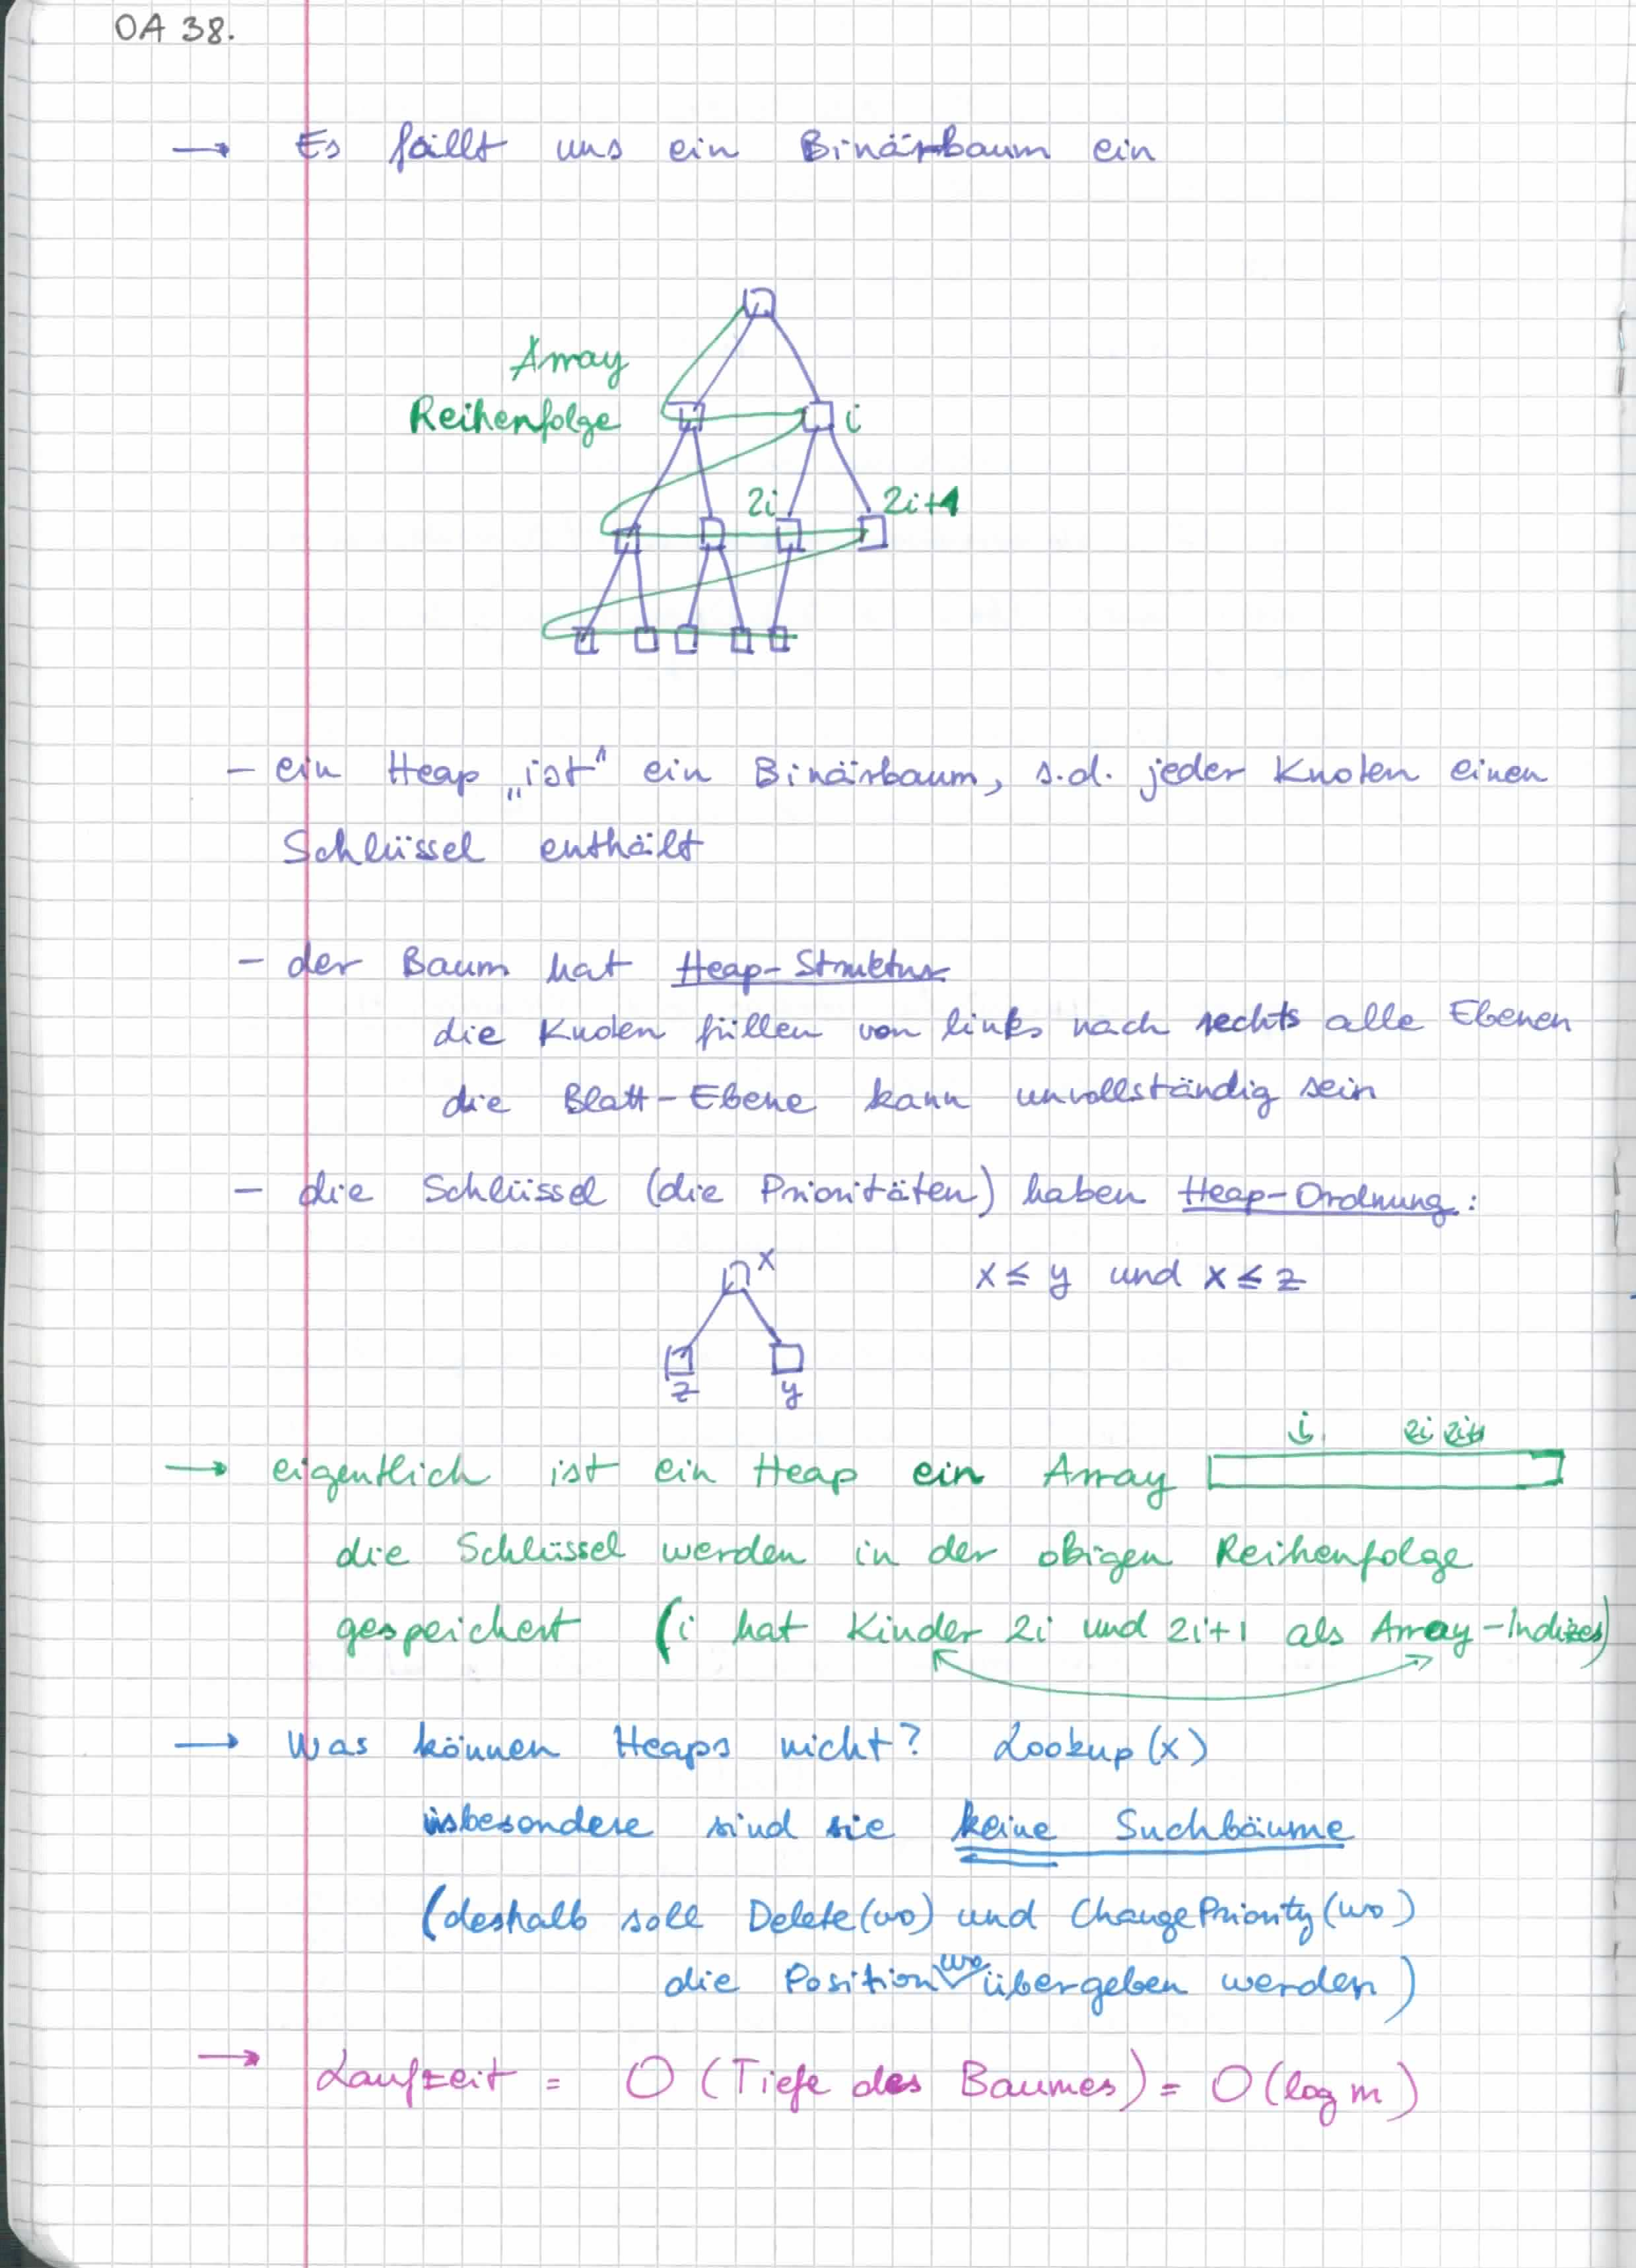 OA 38.
→ Es fällt uns ein Binärbaum ein
Array
Reihenfolge
i
2i 2i+1
– ein Heap „ist" ein Binärbaum, s.d. jeder Knoten einen
Schlüssel enthält
– der Baum hat Heap-Struktur
die Knoten füllen von links nach rechts alle Ebenen
die Blatt-Ebene kann unvollständig sein
– die Schlüssel (die Prioritäten) haben Heap-Ordnung:
x
x ≤ y und x ≤ z
z y
i 2i 2i+1
→ eigentlich ist ein Heap ein Array
die Schlüssel werden in der obigen Reihenfolge
gespeichert (i hat Kinder 2i und 2i+1 als Array-Indizes)
→ Was können Heaps nicht? Lookup(x)
insbesondere sind sie keine Suchbäume
(deshalb soll Delete(wo) und ChangePriority(wo)
die Position wo übergeben werden)
→ Laufzeit = O(Tiefe des Baumes) = O(log m)